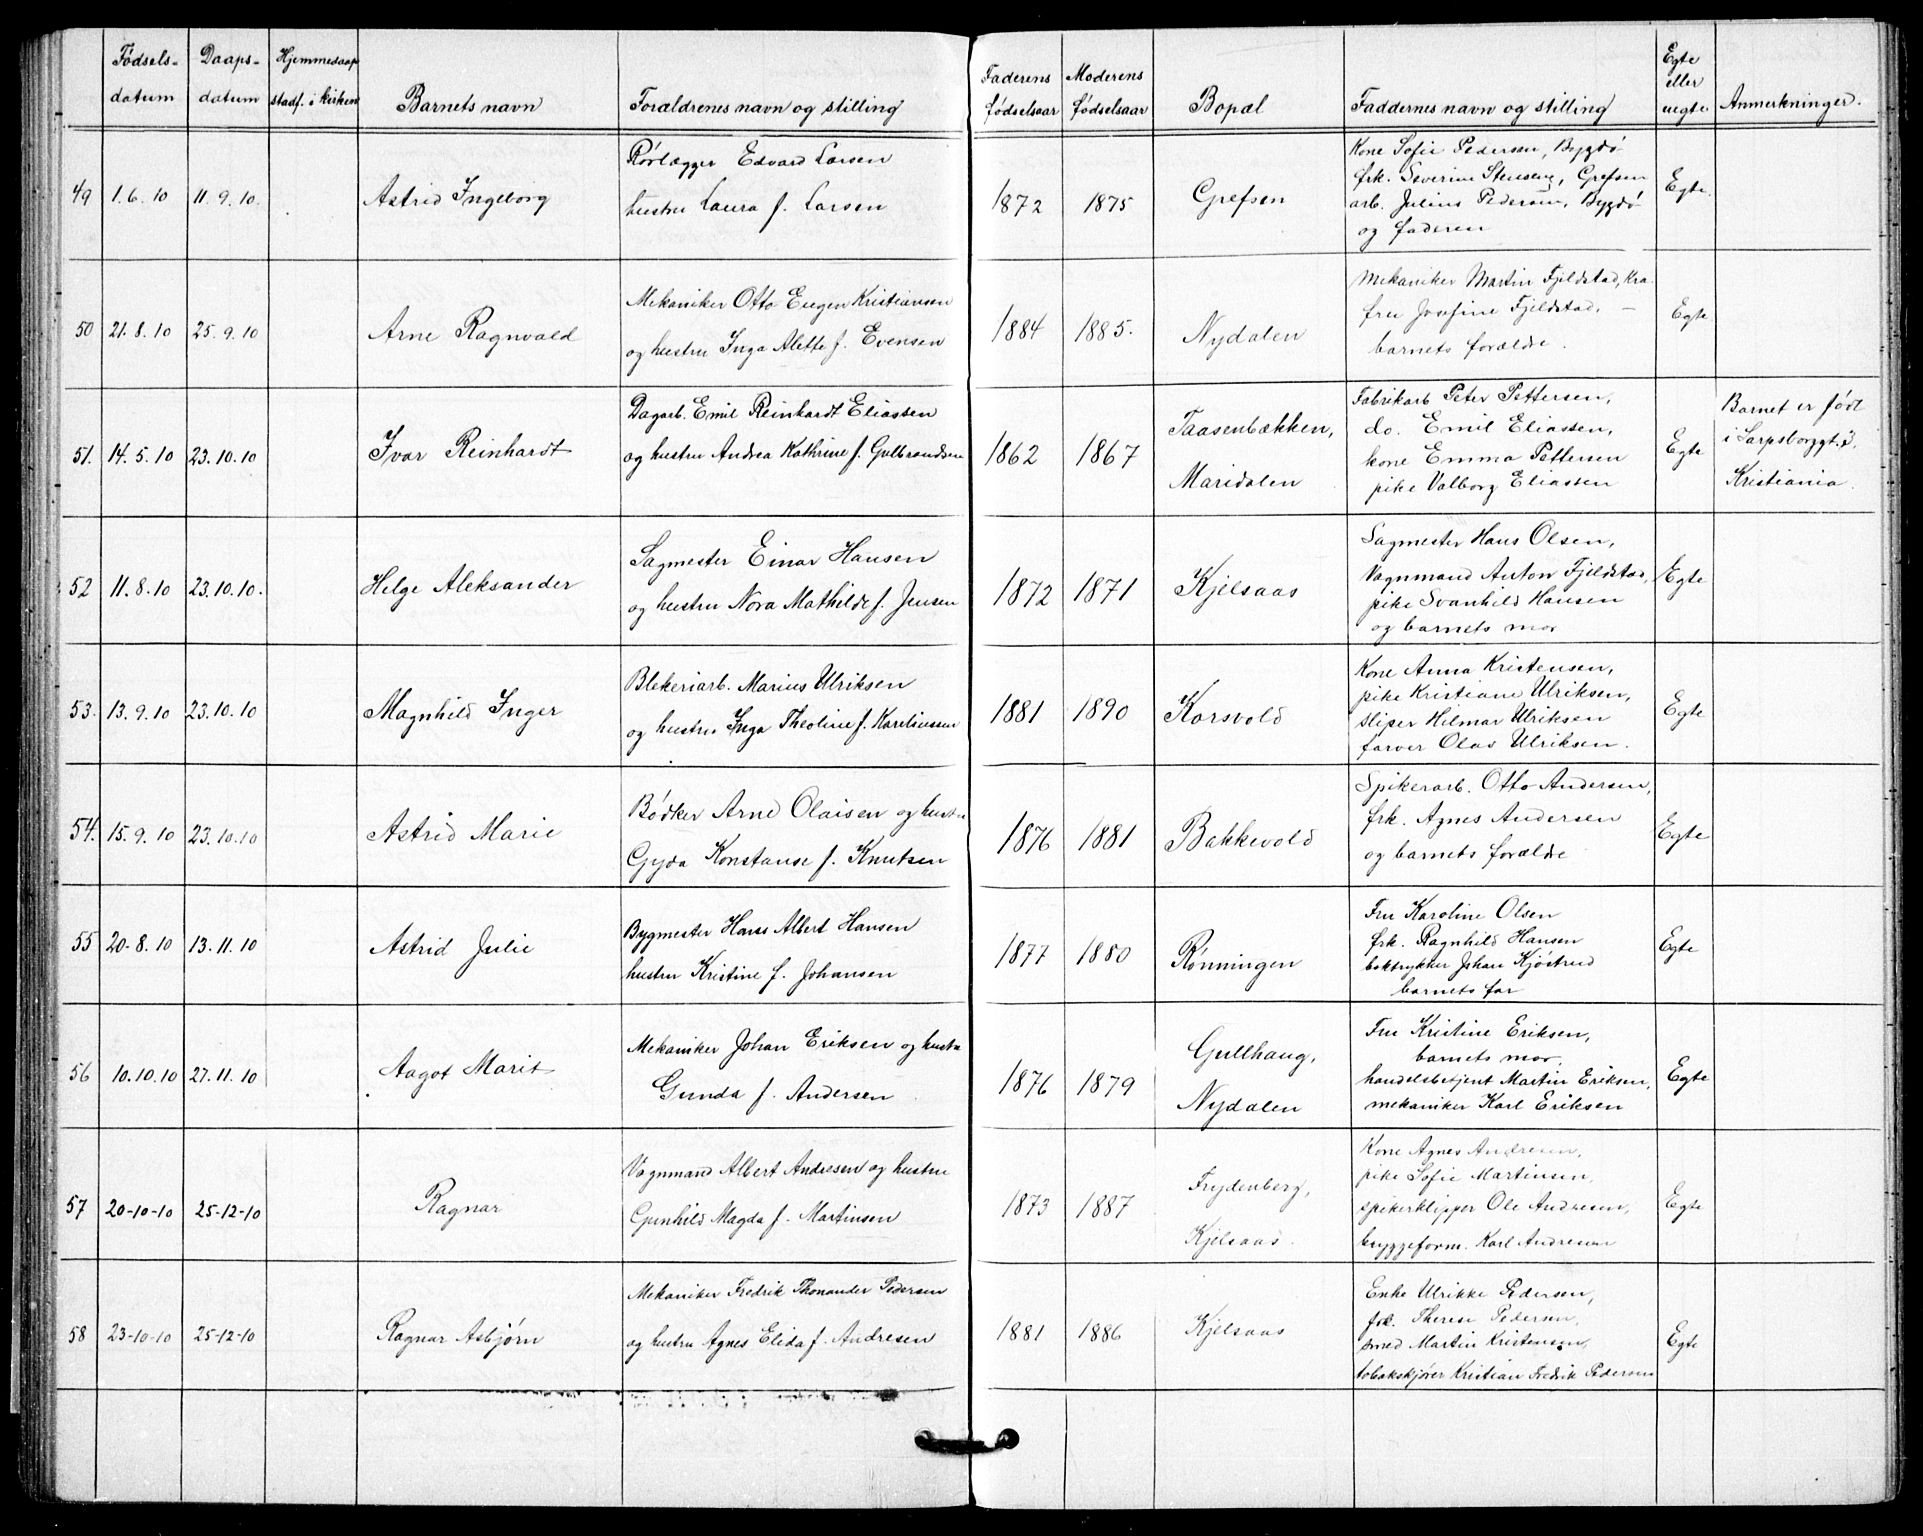 Fødsels-
datum
Daaps-
datum
Hjemmedaap
stadf. i kirken
Barnets navn
Forældrenes navn og stilling
Faderens
fødselsaar
Moderens
fødselsaar
Bopæl
Faddernes navn og stilling
Egte
eller
uegte
Anmerkninger.
49 1.6.10 11.9.10. Astrid Ingeborg
Rørlægger Edvard Larsen
hustru Laura f. Larsen
1872 1875 Grefsen
Kone Sofie Pedersen, Bygdø
frk. Severine Stenseng, Grefsen
arb. Julius Pedersen, Bygdø
og faderen
Egte.
50 21.8.10 25.9.10 Arne Ragnvald
Mekaniker Otto Eugen Kristiansen
og hustru Inga Alette f. Evensen
1884 1885. Nydalen
Mekaniker Martin Fjeldstad, Kra.
fru Josefine Fjeldstad, —
barnets forældre.
Egte.
51. 14.5.10 23.10.10 Ivar Reinhardt
Dagarb. Emil Reinhardt Eliassen
og hustru Andrea Kathrine f. Gulbrandsen
1862 1867
Taasenbækken,
Maridalen
Fabrikarb Peter Pettersen,
do. Emil Eliassen,
kone Emma Pettersen
pike Valborg Eliassen
Egte
Barnet er født
i Sarpsborggt. 3,
Kristiania.
52 11.8.10 23.10.10. Helge Aleksander
Sagmester Einar Hansen
og hustru Nora Mathilde f. Jensen
1872 1871 Kjelsaas
Sagmester Hans Olsen,
Vognmand Anton Fjeldstad,
pike Svanhild Hansen
og barnets mor
Egte
53. 13.9.10 23.10.10 Magnhild Inger
Blekeriarb. Marius Ulriksen
og hustru Inga Theoline f. Kareliussen
1881 1890 Korsvold
Kone Anna Kristensen,
pike Kristiane Ulriksen,
sliper Hilmar Ulriksen
farver Olav Ulriksen.
Egte
54. 15.9.10 23.10.10 Astrid Marie
Bødker Arne Olaisen og hustru
Gyda Konstanse f. Knutsen
1876 1881 Bakkevold
Spikerarb. Otto Andersen,
frk. Agnes Andersen
og barnets forældre
Egte
55 20-8.10 13.11.10 Astrid Julie
Bygmester Hans Albert Hansen
hustru Kristine f. Johansen
1877 1880 Rønningen
Fru Karoline Olsen
frk. Ragnhild Hansen
boktrykker Johan Kjøstrud
barnets far
Egte
56 10.10.10 27.11.10 Aagot Marit
Mekaniker Johan Eriksen og hustru
Gunda f. Andersen
1876 1879
Gullhaug,
Nydalen
Fru Kristine Eriksen,
barnets mor,
handelsbetjent Martin Eriksen,
mekaniker Karl Eriksen
Egte
57 20-10-10 25-12-10 Ragnar
Vognmand Albert Andresen og hustru
Gunhild Magda f. Martinsen
1873 1887
Frydenberg,
Kjelsaas.
Kone Agnes Andresen,
pike Sofie Martinsen,
spikerklipper Ole Andresen,
bryggeform. Karl Andresen
Egte
58 23-10-10 25-12-10 Ragnar Asbjørn
Mekaniker Fredrik Thonander Pedersen
og hustru Agnes Elida f. Andresen
1881 1886 Kjelsaas
Enke Ulrikke Pedersen,
frk. Therese Pedersen,
smed Martin Kristensen,
tobakskjører Kristian Fredrik Pedersen
Egte